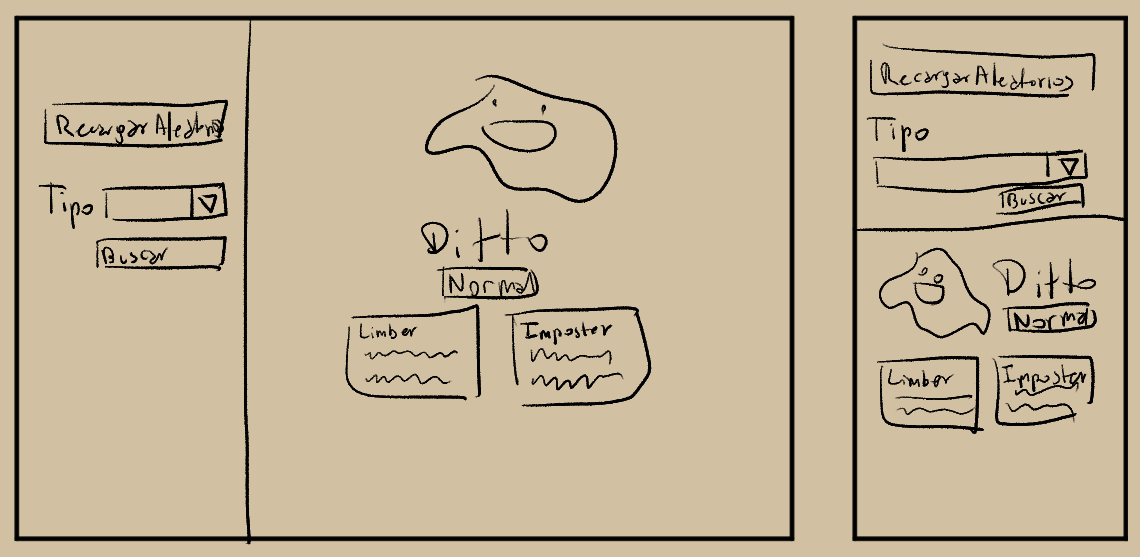 Recargar Aleatorio
Tipo
Buscar
Ditto
Normal
Limber
Imposter
Recargar Aleatorios
Tipo
Buscar
Ditto
Normal
Limber
Imposter